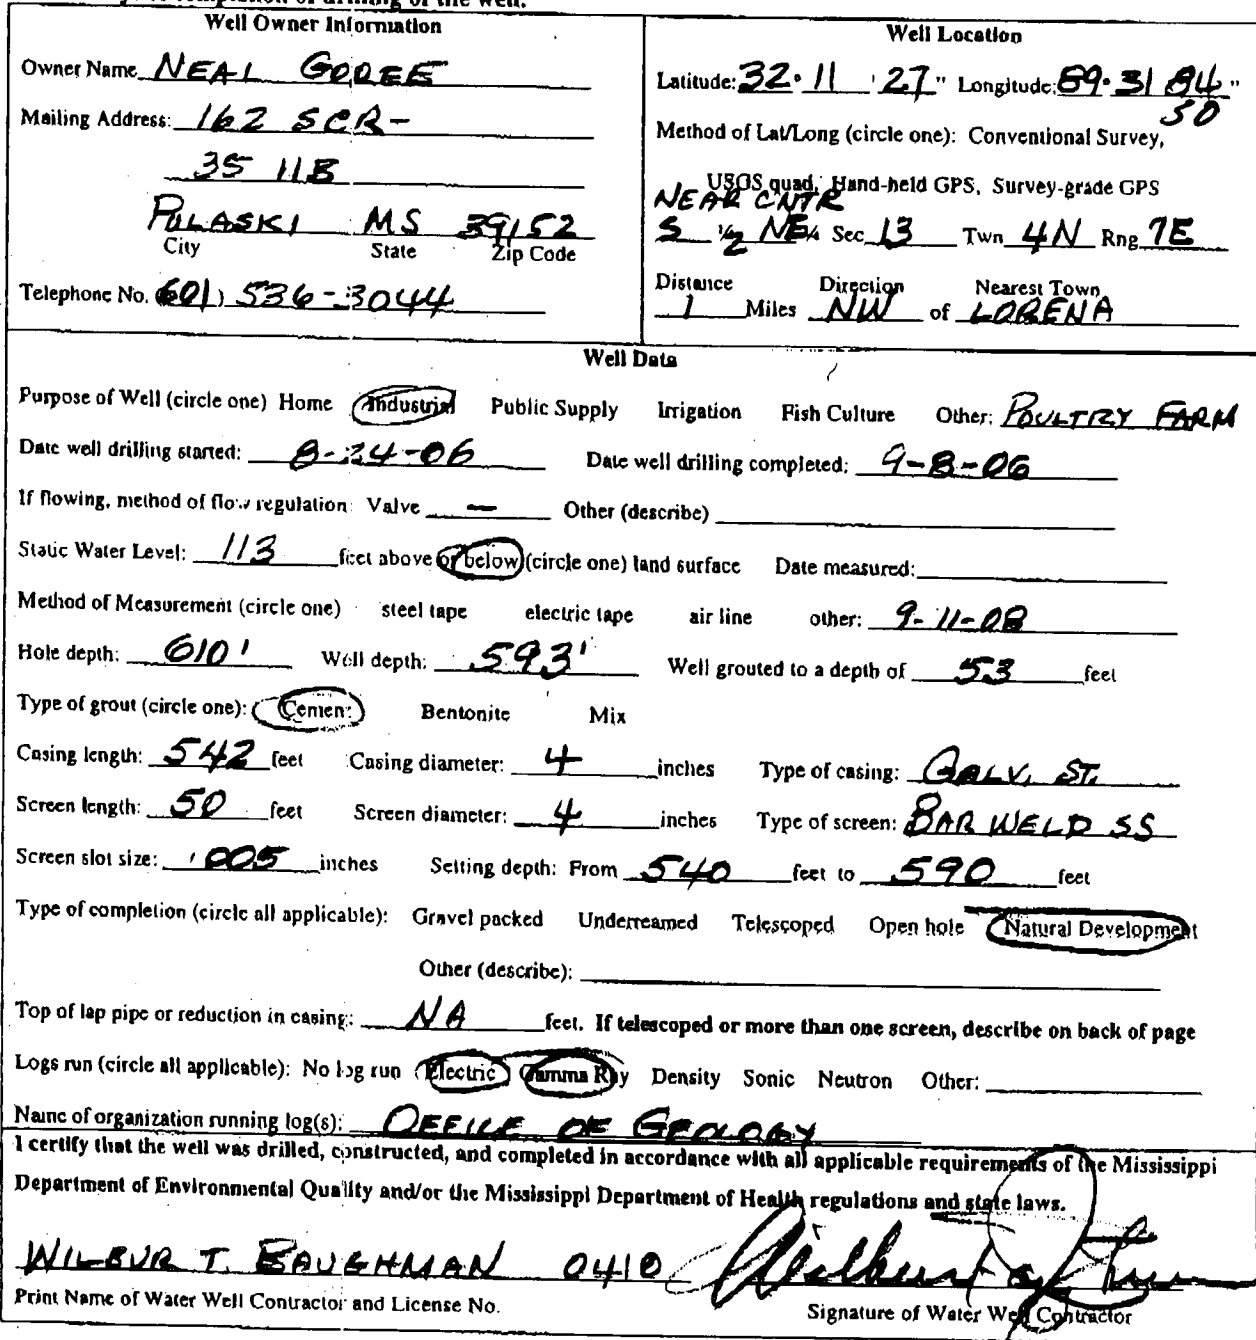 Well Owner Information
Owner Name NEAL GOREE
Mailing Address: 162 SCR-
35 11B
PULASKI MS 39152
City State Zip Code
Telephone No. (601) 536-3044
Well Location
Latitude: 32° 11 ' 27 " Longitude: 89° 31 84 "
50
Method of Lat/Long (circle one): Conventional Survey,
USGS quad, Hand-held GPS, Survey-grade GPS
NEAR CNTR
S ½ NE¼ Sec 13 Twn 4N Rng 7E
Distance Direction Nearest Town
1 Miles NW of LORENA
Well Data
Purpose of Well (circle one) Home Industrial Public Supply Irrigation Fish Culture Other: POULTRY FARM
Date well drilling started: 8-24-06 Date well drilling completed: 9-8-06
If flowing, method of flow regulation: Valve — Other (describe)
Static Water Level: 113 feet above or below (circle one) land surface Date measured:
Method of Measurement (circle one) steel tape electric tape air line other: 9-11-08
Hole depth: 610' Well depth: 593' Well grouted to a depth of 53 feet
Type of grout (circle one): Cement Bentonite Mix
Casing length: 542 feet Casing diameter: 4 inches Type of casing: GALV. ST.
Screen length: 50 feet Screen diameter: 4 inches Type of screen: BAR WELD SS
Screen slot size: .005 inches Setting depth: From 540 feet to 590 feet
Type of completion (circle all applicable): Gravel packed Underreamed Telescoped Open hole Natural Development
Other (describe):
Top of lap pipe or reduction in casing: NA feet. If telescoped or more than one screen, describe on back of page
Logs run (circle all applicable): No log run Electric Gamma Ray Density Sonic Neutron Other:
Name of organization running log(s): OFFICE OF GEOLOGY
I certify that the well was drilled, constructed, and completed in accordance with all applicable requirements of the Mississippi
Department of Environmental Quality and/or the Mississippi Department of Health regulations and state laws.
WILBUR T. BAUGHMAN 0410 Wilbur
Print Name of Water Well Contractor and License No. Signature of Water Well Contractor